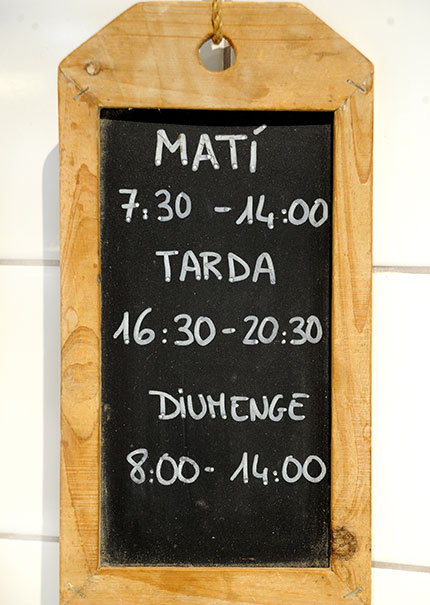 MATÍ
7:30 - 14:00
TARDA
16:30 - 20:30
DiUMENGE
8:00 - 14:00